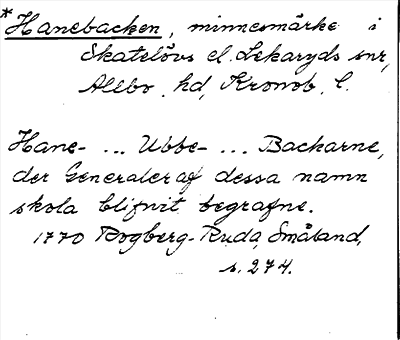 *Hanebacken, minnesmärke i
Skatelövs el. Lekaryds snr,
Allbo hd, Kronob. l.
Hane- ... Ubbe- ... Backarne,
der Generaler af dessa namn
skola blifvit begrafne.
1770 Rogberg-Ruda, Småland,
s. 274.